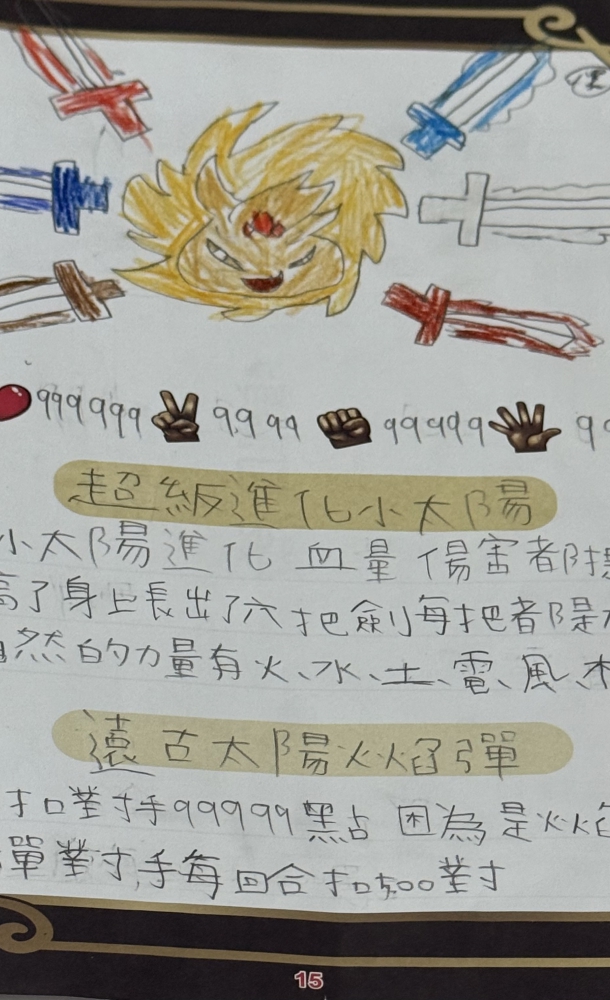 999999 9999 99999 99
超級進化小太陽
小太陽進化 血量傷害都提
高了身上長出了六把劍每把都是大
自然的力量有火、水、土、電、風、木
遠古太陽火焰彈
扣對手99999點 因為是火焰
彈對手每回合扣500對
15